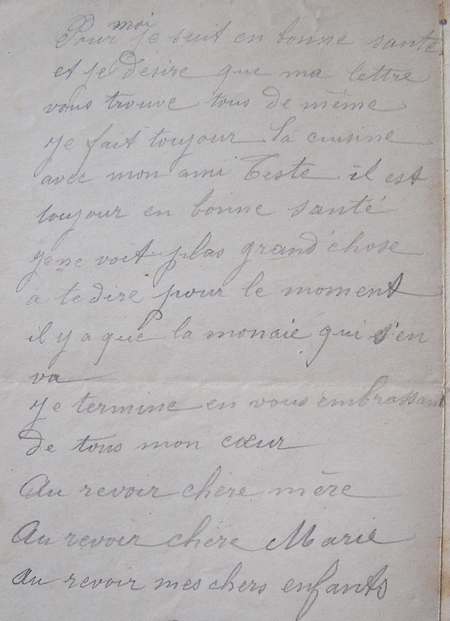 Pour moi je suit en bonne santé
et je désire que ma lettre
vous trouve tous de même
Je fait toujour la cuisine
avec mon ami Teste il est
toujour en bonne santé
Je ne voit plas grand chose
a te dire pour le moment
il y a que la monaie qui s'en
va
Je termine en vous embrassant
de tous mon cœur
Au revoir chère mère
Au revoir chère Marie
Au revoir mes chers enfants